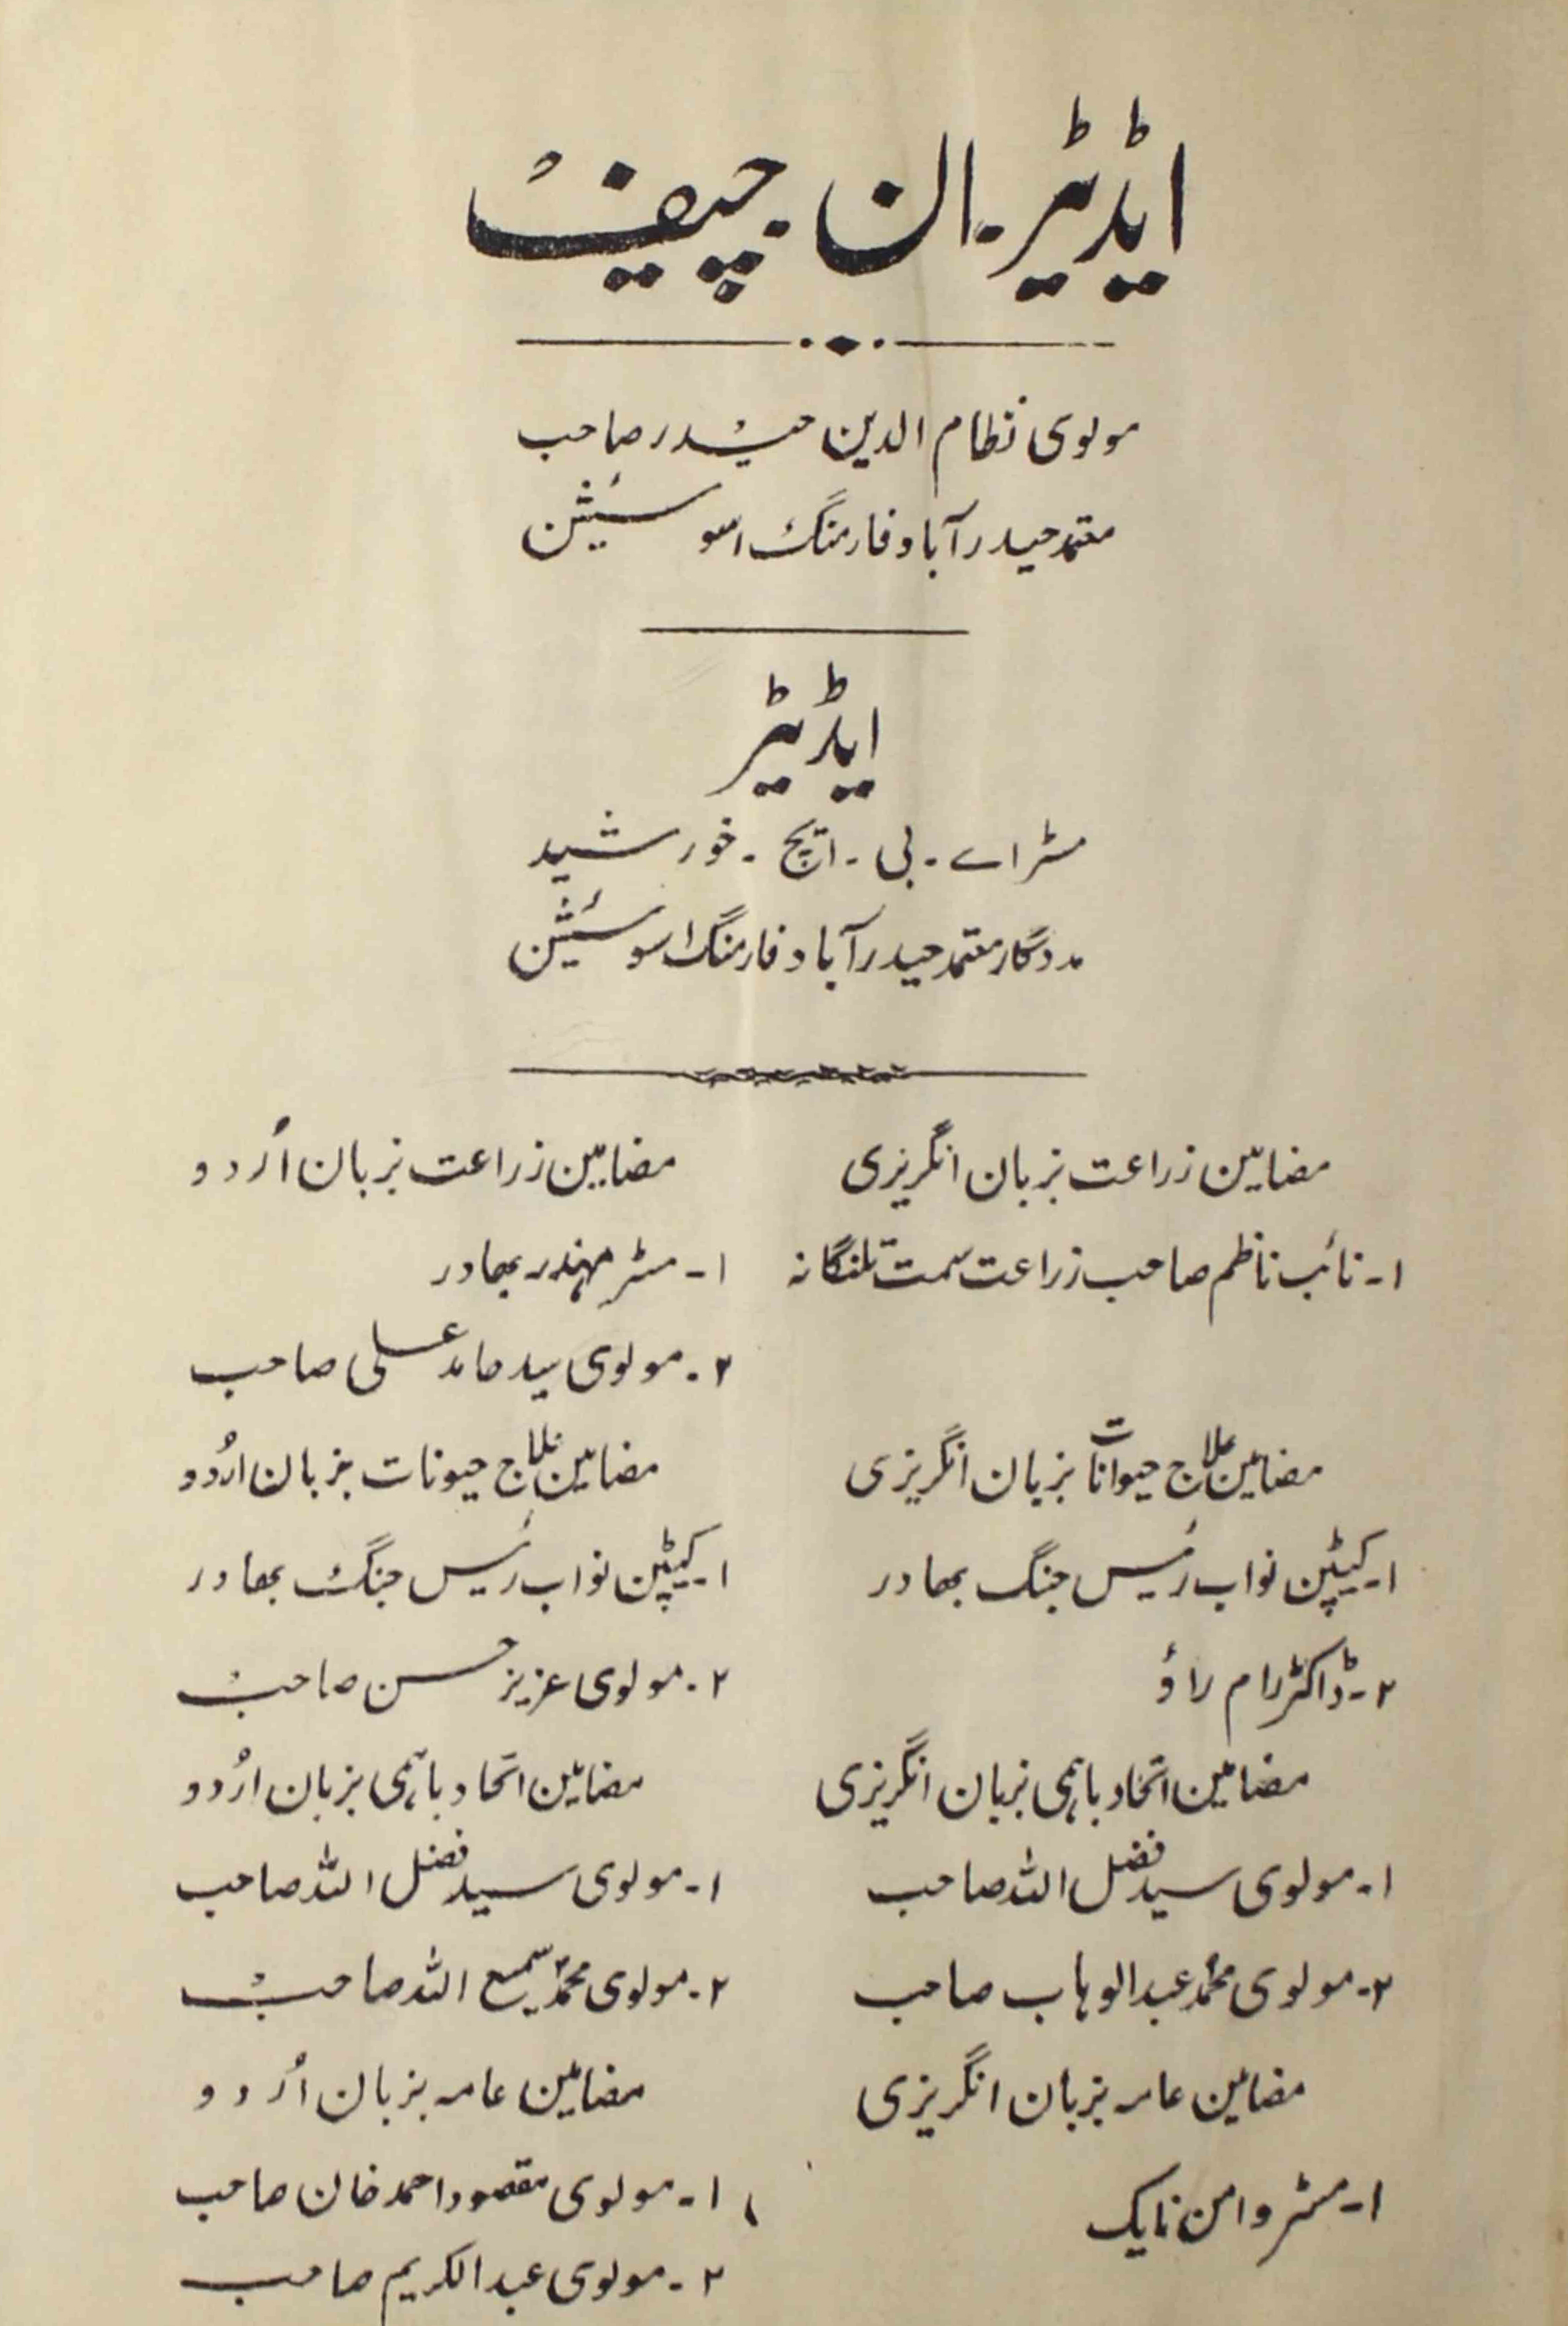 ایڈیٹر۔ان چیف
مولوی نظام الدین حیدر صاحب
معتمد حیدرآباد فارمنگ اسوسیئشن
ایڈیٹر
مسٹر اے۔ بی۔ ایچ۔ خورشید
مددگار معتمد حیدرآباد فارمنگ اسوسیئشن
مضامین زراعت بزبان انگریزی
۱۔ نائب ناظم صاحب زراعت سمت تلنگانہ
مضامین علاج حیوانات بزبان انگریزی
۱۔ کیپٹین نواب رئیس جنگ بھادر
۲۔ ڈاکٹر رام راؤ
مضامین اتحاد باہمی بزبان انگریزی
۱۔ مولوی سید فضل اللہ صاحب
۲۔ مولوی محمد عبدالوہاب صاحب
مضامین عامہ بزبان انگریزی
۱۔ مسٹر وامن نایک
مضامین زراعت بزبان اُردو
۱۔ مسٹر مہندر بھادر
۲۔ مولوی سید حامد علی صاحب
مضامین علاج حیونات بزبان اُردو
۱۔ کیپٹین نواب رئیس جنگ بھادر
۲۔ مولوی عزیز حسن صاحب
مضامین اتحاد باہمی بزبان اُردو
۱۔ مولوی سید فضل اللہ صاحب
۲۔ مولوی محمد سمیع اللہ صاحب
مضامین عامہ بزبان اُردو
۱۔ مولوی مقصود احمد خان صاحب
۲۔ مولوی عبدالکریم صاحب